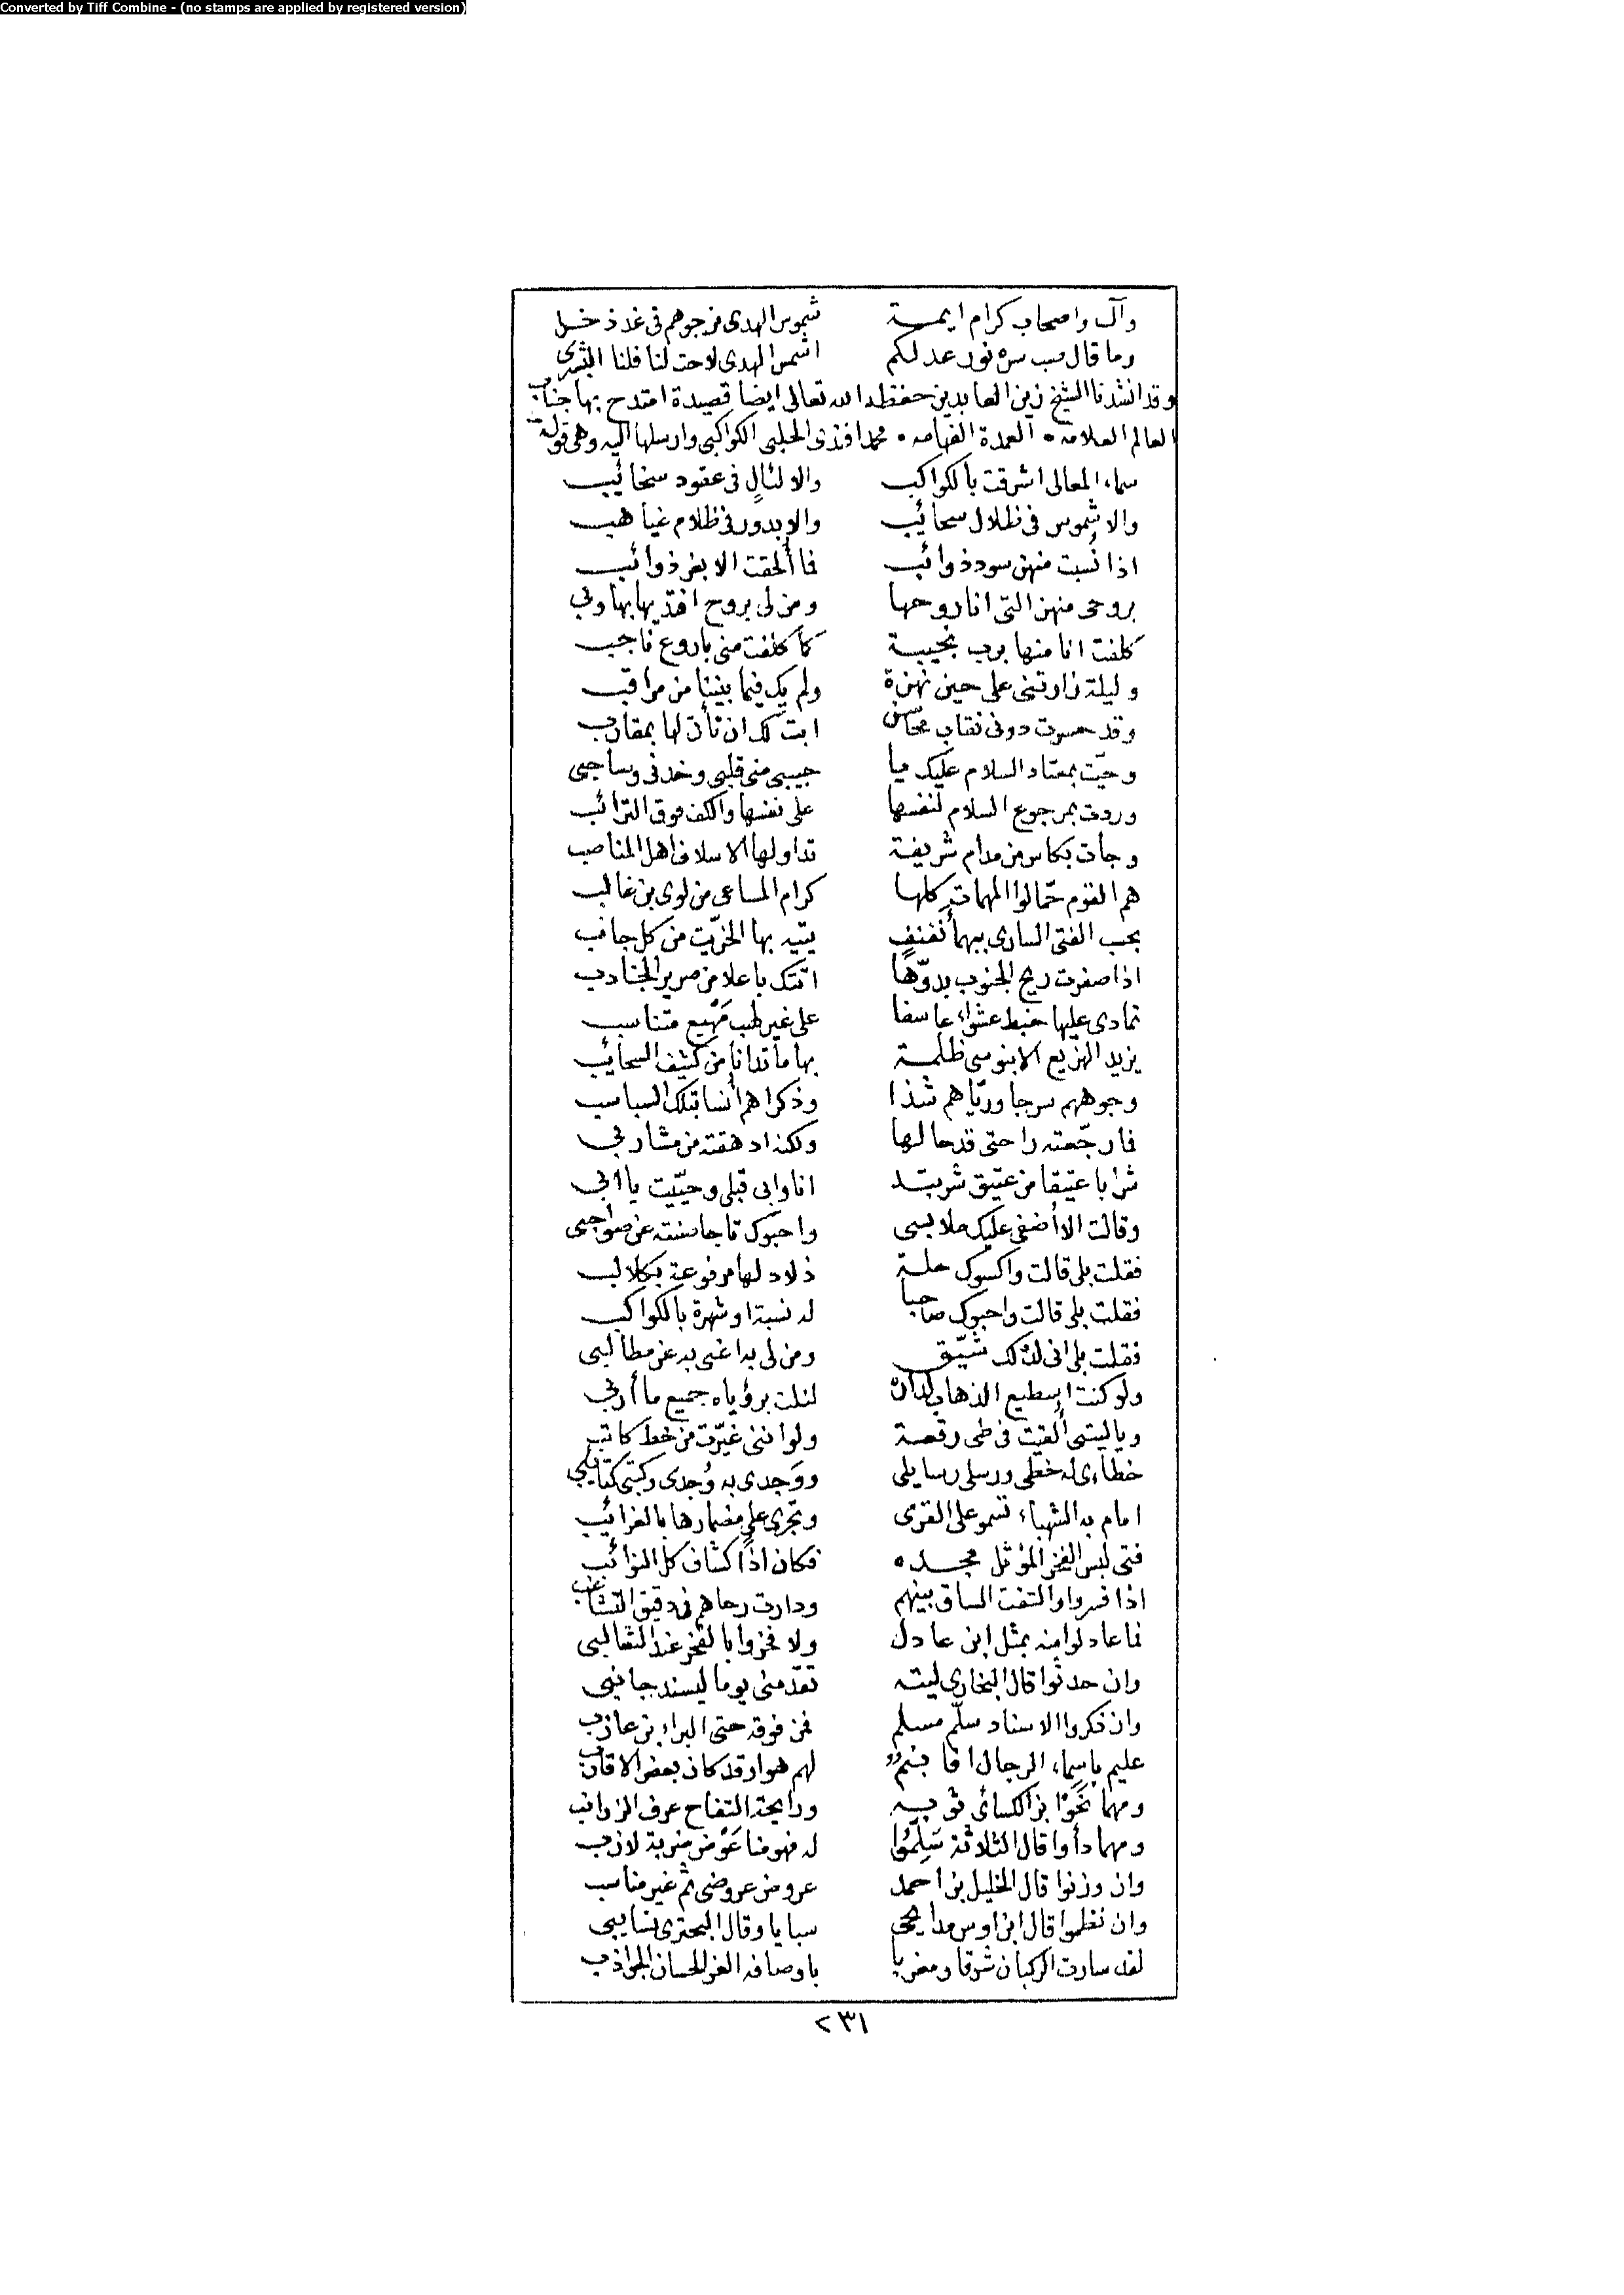 Converted by Tiff Combine - (no stamps are applied by registered version)
وآل واصحاب كرام ايمـة شموس الهدى نرجوهم فى غد ذخـل
وما قال صب سره نور عدلكم اشمس الهدى لاحت لنا فلنا البشرى
وقد انشدنا الشيخ زين العابدين حفظه الله تعالى ايضا قصيدة امتدح بها جناب
العالم العلامه • العمدة الفهامه • محمد افندى الحلبى الكواكبى وارسلها اليه وهى قوله
سماء المعالى اشرقت بالكواكب والا لئال فى عقود سخائب
والا شموس فى ظلال سحائب والا بدور فى ظلام غياهب
اذا نسبت منهن سود ذوائب فما ألحقت الا بغر ذوائب
بروحى منهن التى انا روحها ومن لى بروح افتديها بها وبى
كلفت انا منها برب نجيبة كما كلفت منى باروع ناجب
وليلة زارتنى على حين نهزة ولم يك فيما بيننا من مراقب
وقد حسرت دونى نقاب محاسن ابت لك ان تأت لها بمقارب
وحيّت بمعتاد السلام عليك يا حبيبى منى قلبى وخدنى وصاحبى
وردت بمرجوع السلام لنفسها على نفسها والكف فوق الترائب
وجأت بكاس من مدام شريفة تداولها الاسلاف اهل المناصب
هم القوم حمّالوا المهمات كلها كرام المساعى من لوى بن غالب
بحب الفتى السارى بيهما نفنف يتيه بها الخرّيت من كل جانب
اذا صفرت ريح الجنوب بدوّها اتتك باعلا من صرير الجنادب
تمادى عليها خبط عشواء عاسفا على غير لحب مهيع متناسب
يزيد الهزيع الابنوسى ظلمة بها ما تدانا من كثيف السحايب
وجوههم سرجا وريّاهم شذا وذكراهم أنسا بتلك السباسب
فما رجّعته راحتى قدحا لها ولكنه ادهقته من مشاربى
شرابا عتيقا من عتيق شربته انا وابى قبلى وحيّيت يا ابى
وقالت الا أضفى عليك ملابسى واحبوك تاجا صنته عن صواحبى
فقلت بلى قالت واكسوك حلـة ذلاذلها مرفوعة بكلالب
فقلت بلى قالت واحبوك صاحبا له نسبة او شهرة بالكواكب
فقلت بلى انى لذلك شيّق ومن لى بداعى به عن مطالبى
ولو كنت اسطيع الذهاب لداره لنلت برؤياه جميع مأاربى
وياليتنى ألفيت فى طى رقعـة ولو اننى غيّرت من خط كاتب
خطاءى له خطى ورسلى رسايلى ووجدى به وُجدى وكتبى كتائبى
امام به الشهباء تسمو على القرى وتجرى على مضمارها بالغرائب
فتى لبس الفخر المؤثل مجـده فكان اذًا كشاف كل النوائب
اذا فسروا والتفت الساق بينهم ودارت رحاهم فى دقيق التشاغب
فما عادلوا منه بمثل ابن عادل ولا فخروا بالفخر عند الثعالبى
وان حدثوا قال البخارى ليته تقدّمنى يوما ليسند جانبى
وان ذكروا الاسناد سلّم مسلم فمن فوقه حتى البراء بن عازب
عليم باسماء الرجال اقا بنم لهم هوار قد كان بعض الاقارب
ومهما نحَوْا بز الكسائى ثوبـه ورايحة التفاح عرف الزرانب
ومهما دأوا قال الثلاثة سَلِّموا له فهو منا عوض ضربة لازب
وان وزنوا قال الخليل بن احمد عروض عروضى ثم غير مناسب
وان نظموا قال ابن اوس مدايحى سبايا وقال البحترى نسايبى
لقد سارت الركبان شرقا ومغربا باوصافه الغر الحسان الجواذب
٢٣١